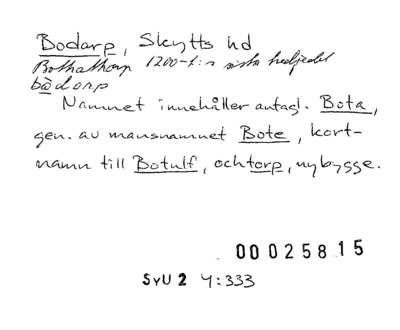 Bodarp, Skytts hd
Bothathorp 1200-t:s sista tredjedel
bådorp
Namnet innehåller antagl. Bota,
gen. av mansnamnet Bote, kort-
namn till Botulf, och torp, nybygge.
00025815
SvU 2 4:333